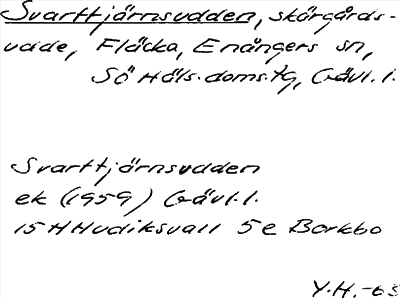 Svarttjärnsudden, skärgårds-
udde, Fläcka, Enångers sn,
Sö Häls. doms. tg, Gävl. l.
Svarttjärnsudden
ek (1959) Gävl. l.
15 H Hudiksvall 5 e Borkbo
Y.H. -63